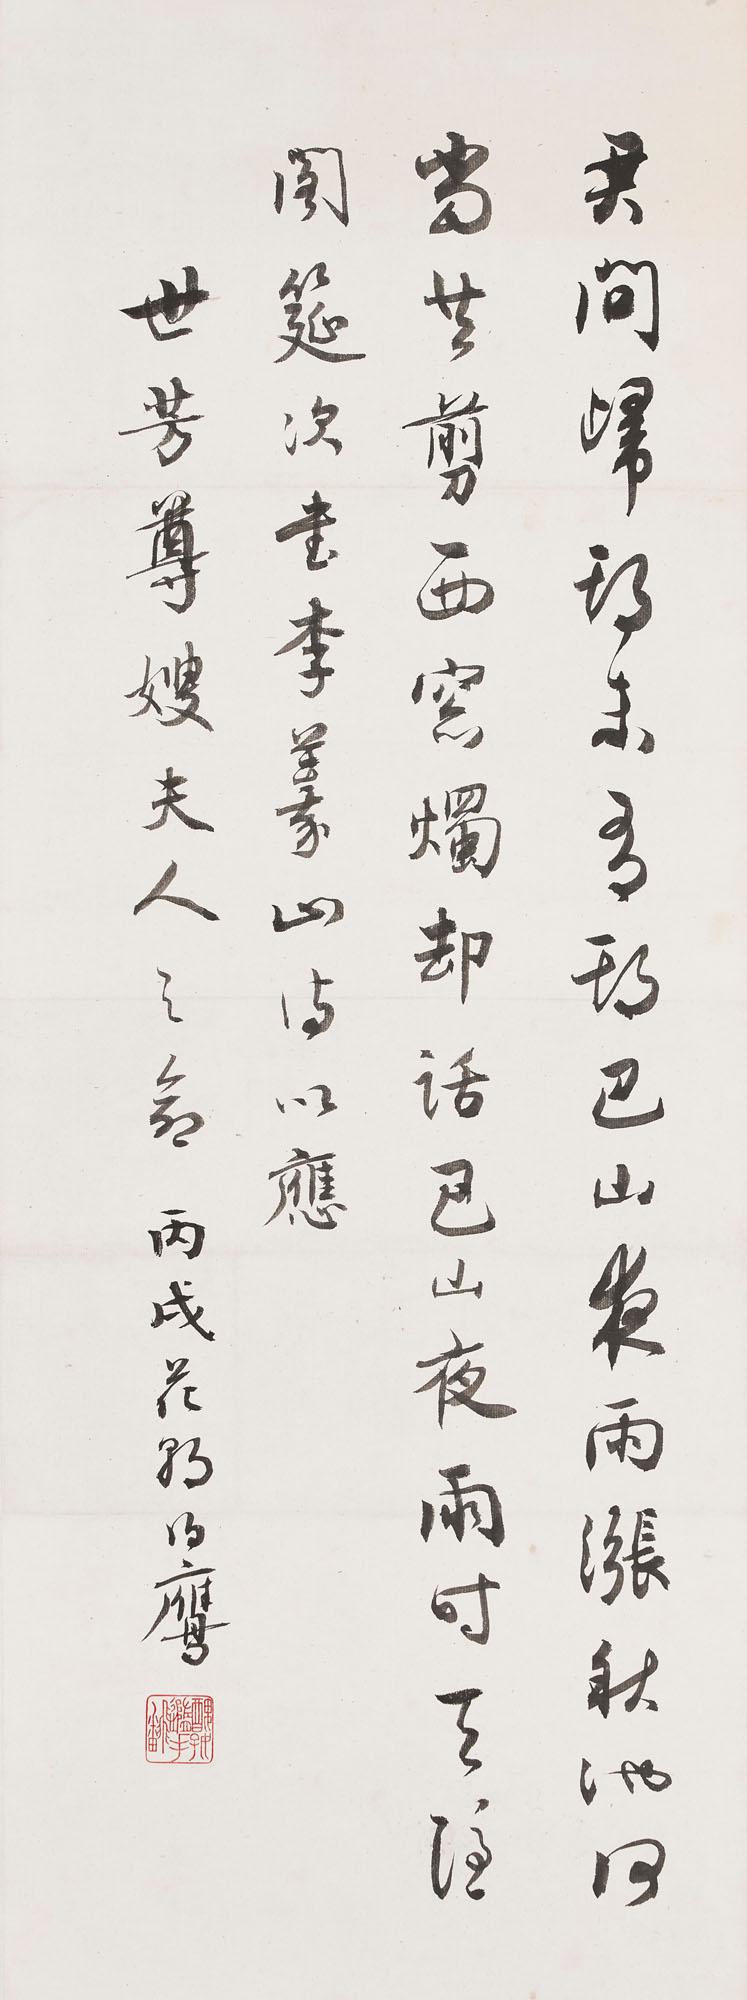 君問歸期未有期巴山夜雨漲秋池何
當共剪西窗燭却話巴山夜雨時天隱
閣筵次書李義山詩以應
世芳尊嫂夫人之命 丙戌花朝沔鷹